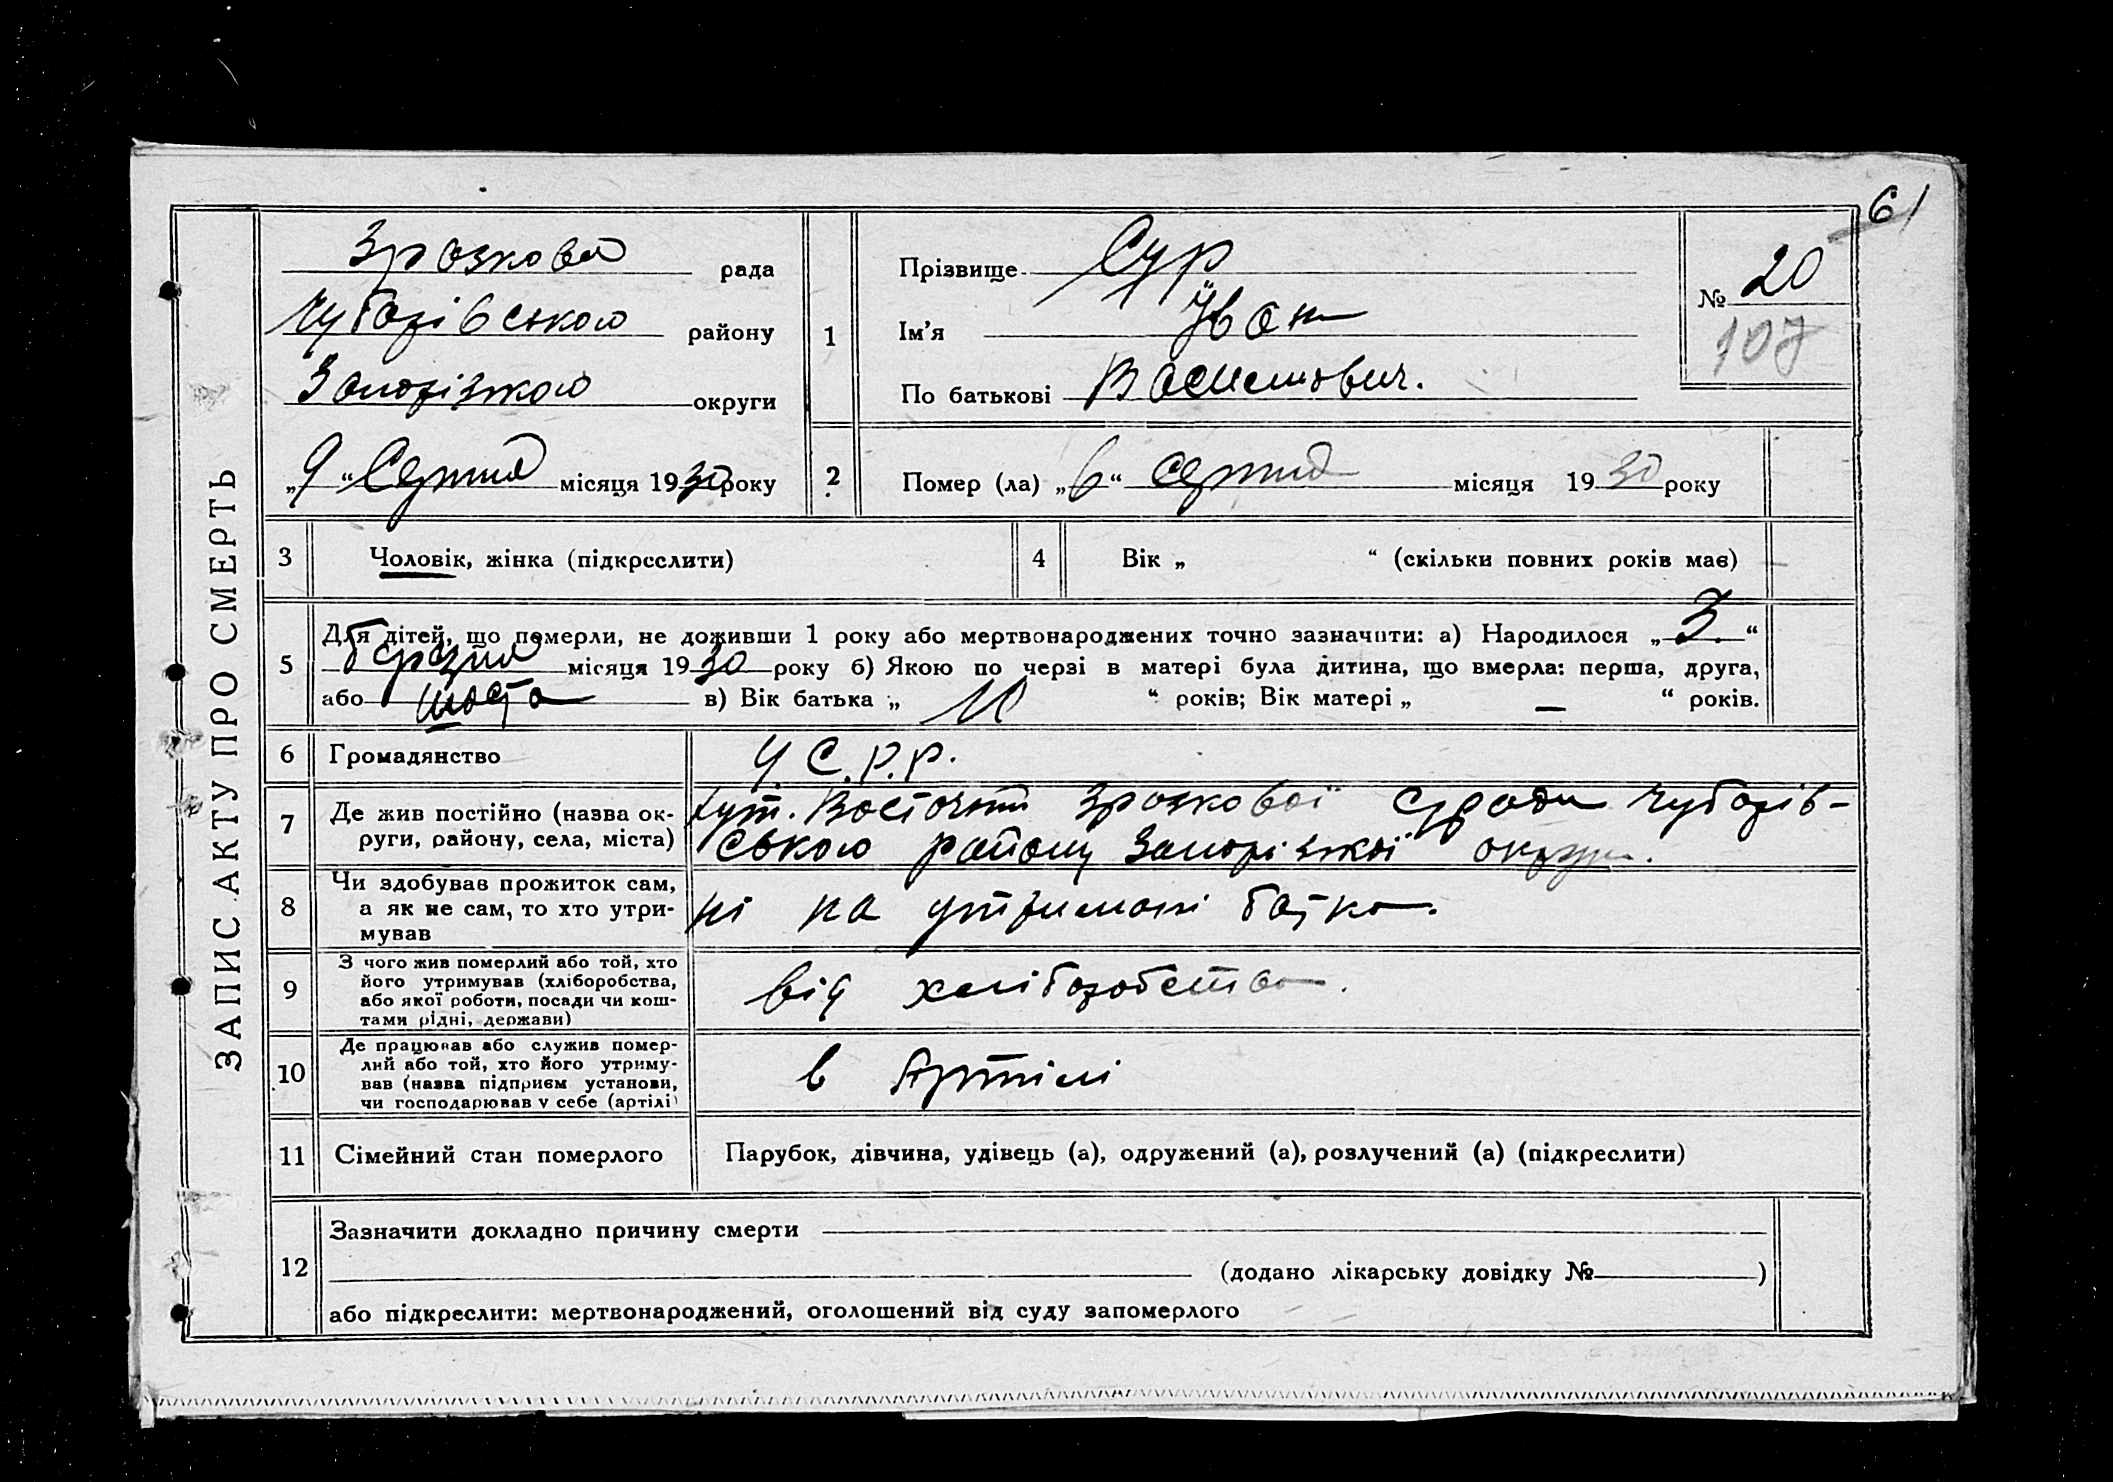 61
ЗАПИС АКТУ ПРО СМЕРТЬ
Зразкова рада
Чубарівського району
Запорізького округи
„9“ Серпня місяця 1930 року
1
Прізвище Сур
Ім'я Іван
По батькові Васильович.
№ 20
107
2
Помер (ла) „6“ серпня місяця 1930 року
3 Чоловік, жінка (підкреслити)
4 Вік „ “ (скільки повних років має)
5
Для дітей, що померли, не доживши 1 року або мертвонароджених точно зазначити: а) Народилося „3.“
березня місяця 1930 року б) Якою по черзі в матері була дитина, що вмерла: перша, друга,
або шоста в) Вік батька „ “ років; Вік матері „ — “ років.
6 Громадянство У.С.Р.Р.
7 Де жив постійно (назва ок-
руги, району, села, міста)
хут. Восточний Зразкової с/ради Чубарів-
ського району Запорізької округи.
8 Чи здобував прожиток сам,
а як не сам, то хто утри-
мував
ні на утриманні батька.
9 З чого жив померлий або той, хто
його утримував (хліборобства,
або якої роботи, посади чи кош-
тами рідні, держави)
від хліборобства.
10 Де працював або служив помер-
лий або той, хто його утриму-
вав (назва підприєм установи,
чи господарював у себе (артілі)
в Артілі
11 Сімейний стан померлого Парубок, дівчина, удівець (а), одружений (а), розлучений (а) (підкреслити)
12
Зазначити докладно причину смерти
(додано лікарську довідку № )
або підкреслити: мертвонароджений, оголошений від суду запомерлого